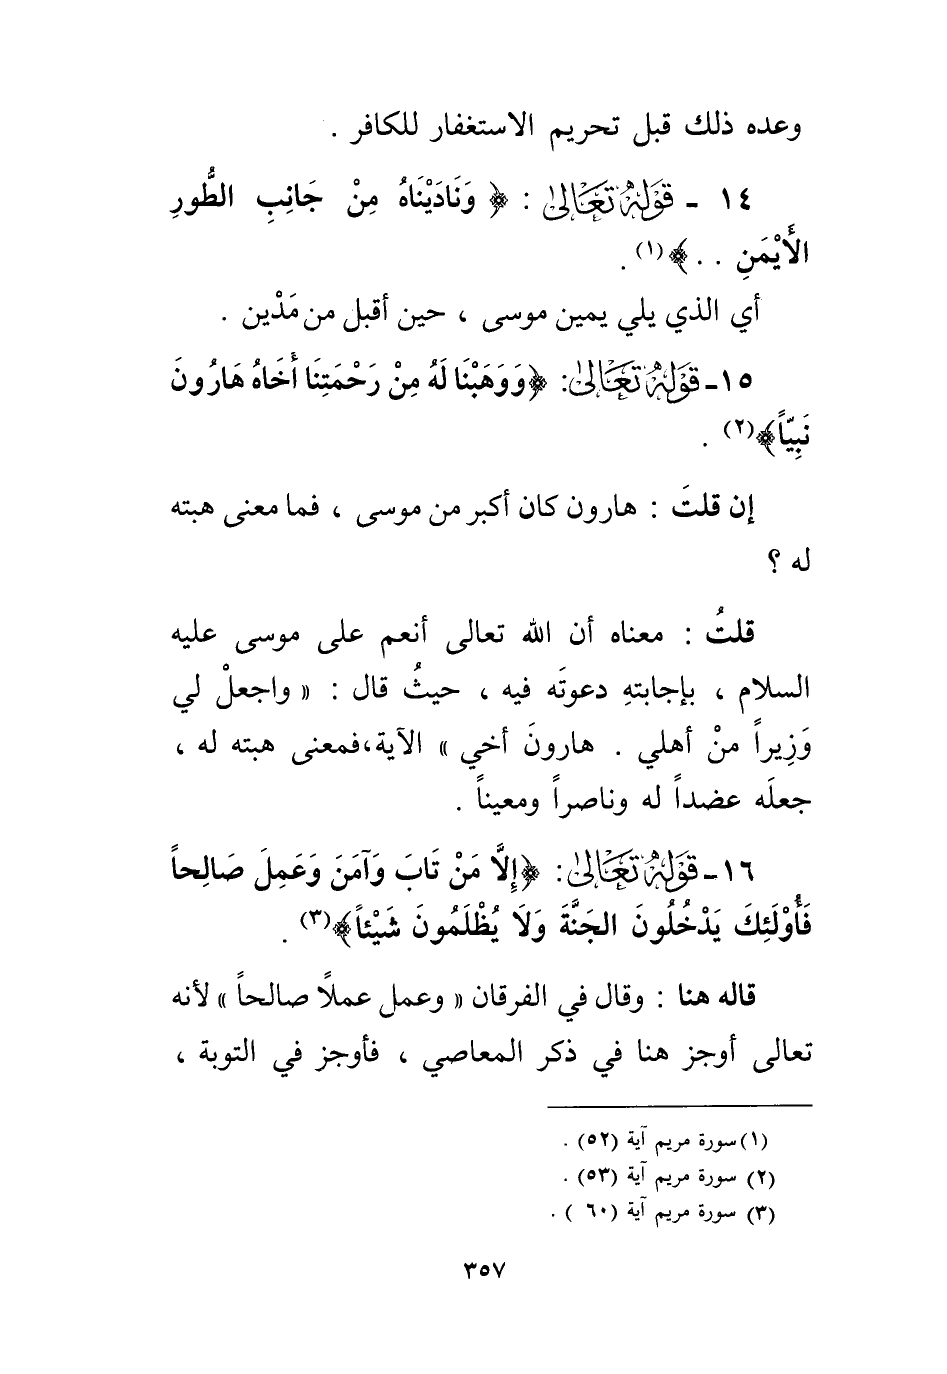 وعده ذلك قبل تحريم الاستغفار للكافر .
١٤ - قَوْلُهُ تَعَالىٰ : ﴿ وَنَادَيْنَاهُ مِنْ جَانِبِ الطُّورِ
الأَيْمَنِ . . ﴾(١) .
أي الذي يلي يمين موسى ، حين أقبل من مَدْين .
١٥- قَوْلُهُ تَعَالىٰ: ﴿وَوَهَبْنَا لَهُ مِنْ رَحْمَتِنَا أَخَاهُ هَارُونَ
نَبِيّاً﴾(٢) .
إن قلتَ : هارون كان أكبر من موسى ، فما معنى هبته
له ؟
قلتُ : معناه أن الله تعالى أنعم على موسى عليه
السلام ، بإجابتهِ دعوتَه فيه ، حيثُ قال : « واجعلْ لي
وَزِيراً منْ أهلي . هارونَ أخي » الآية،فمعنى هبته له ،
جعلَه عضداً له وناصراً ومعيناً .
١٦- قَوْلُهُ تَعَالىٰ: ﴿إِلَّا مَنْ تَابَ وَآمَنَ وَعَمِلَ صَالِحاً
فَأُوْلَئِكَ يَدْخُلُونَ الجَنَّةَ وَلَا يُظْلَمُونَ شَيْئاً﴾(٣) .
قاله هنا : وقال في الفرقان « وعمل عملًا صالحاً » لأنه
تعالى أوجز هنا في ذكر المعاصي ، فأوجز في التوبة ،
(١) سورة مريم آية (٥٢) .
(٢) سورة مريم آية (٥٣) .
(٣) سورة مريم آية (٦٠ ) .
٣٥٧